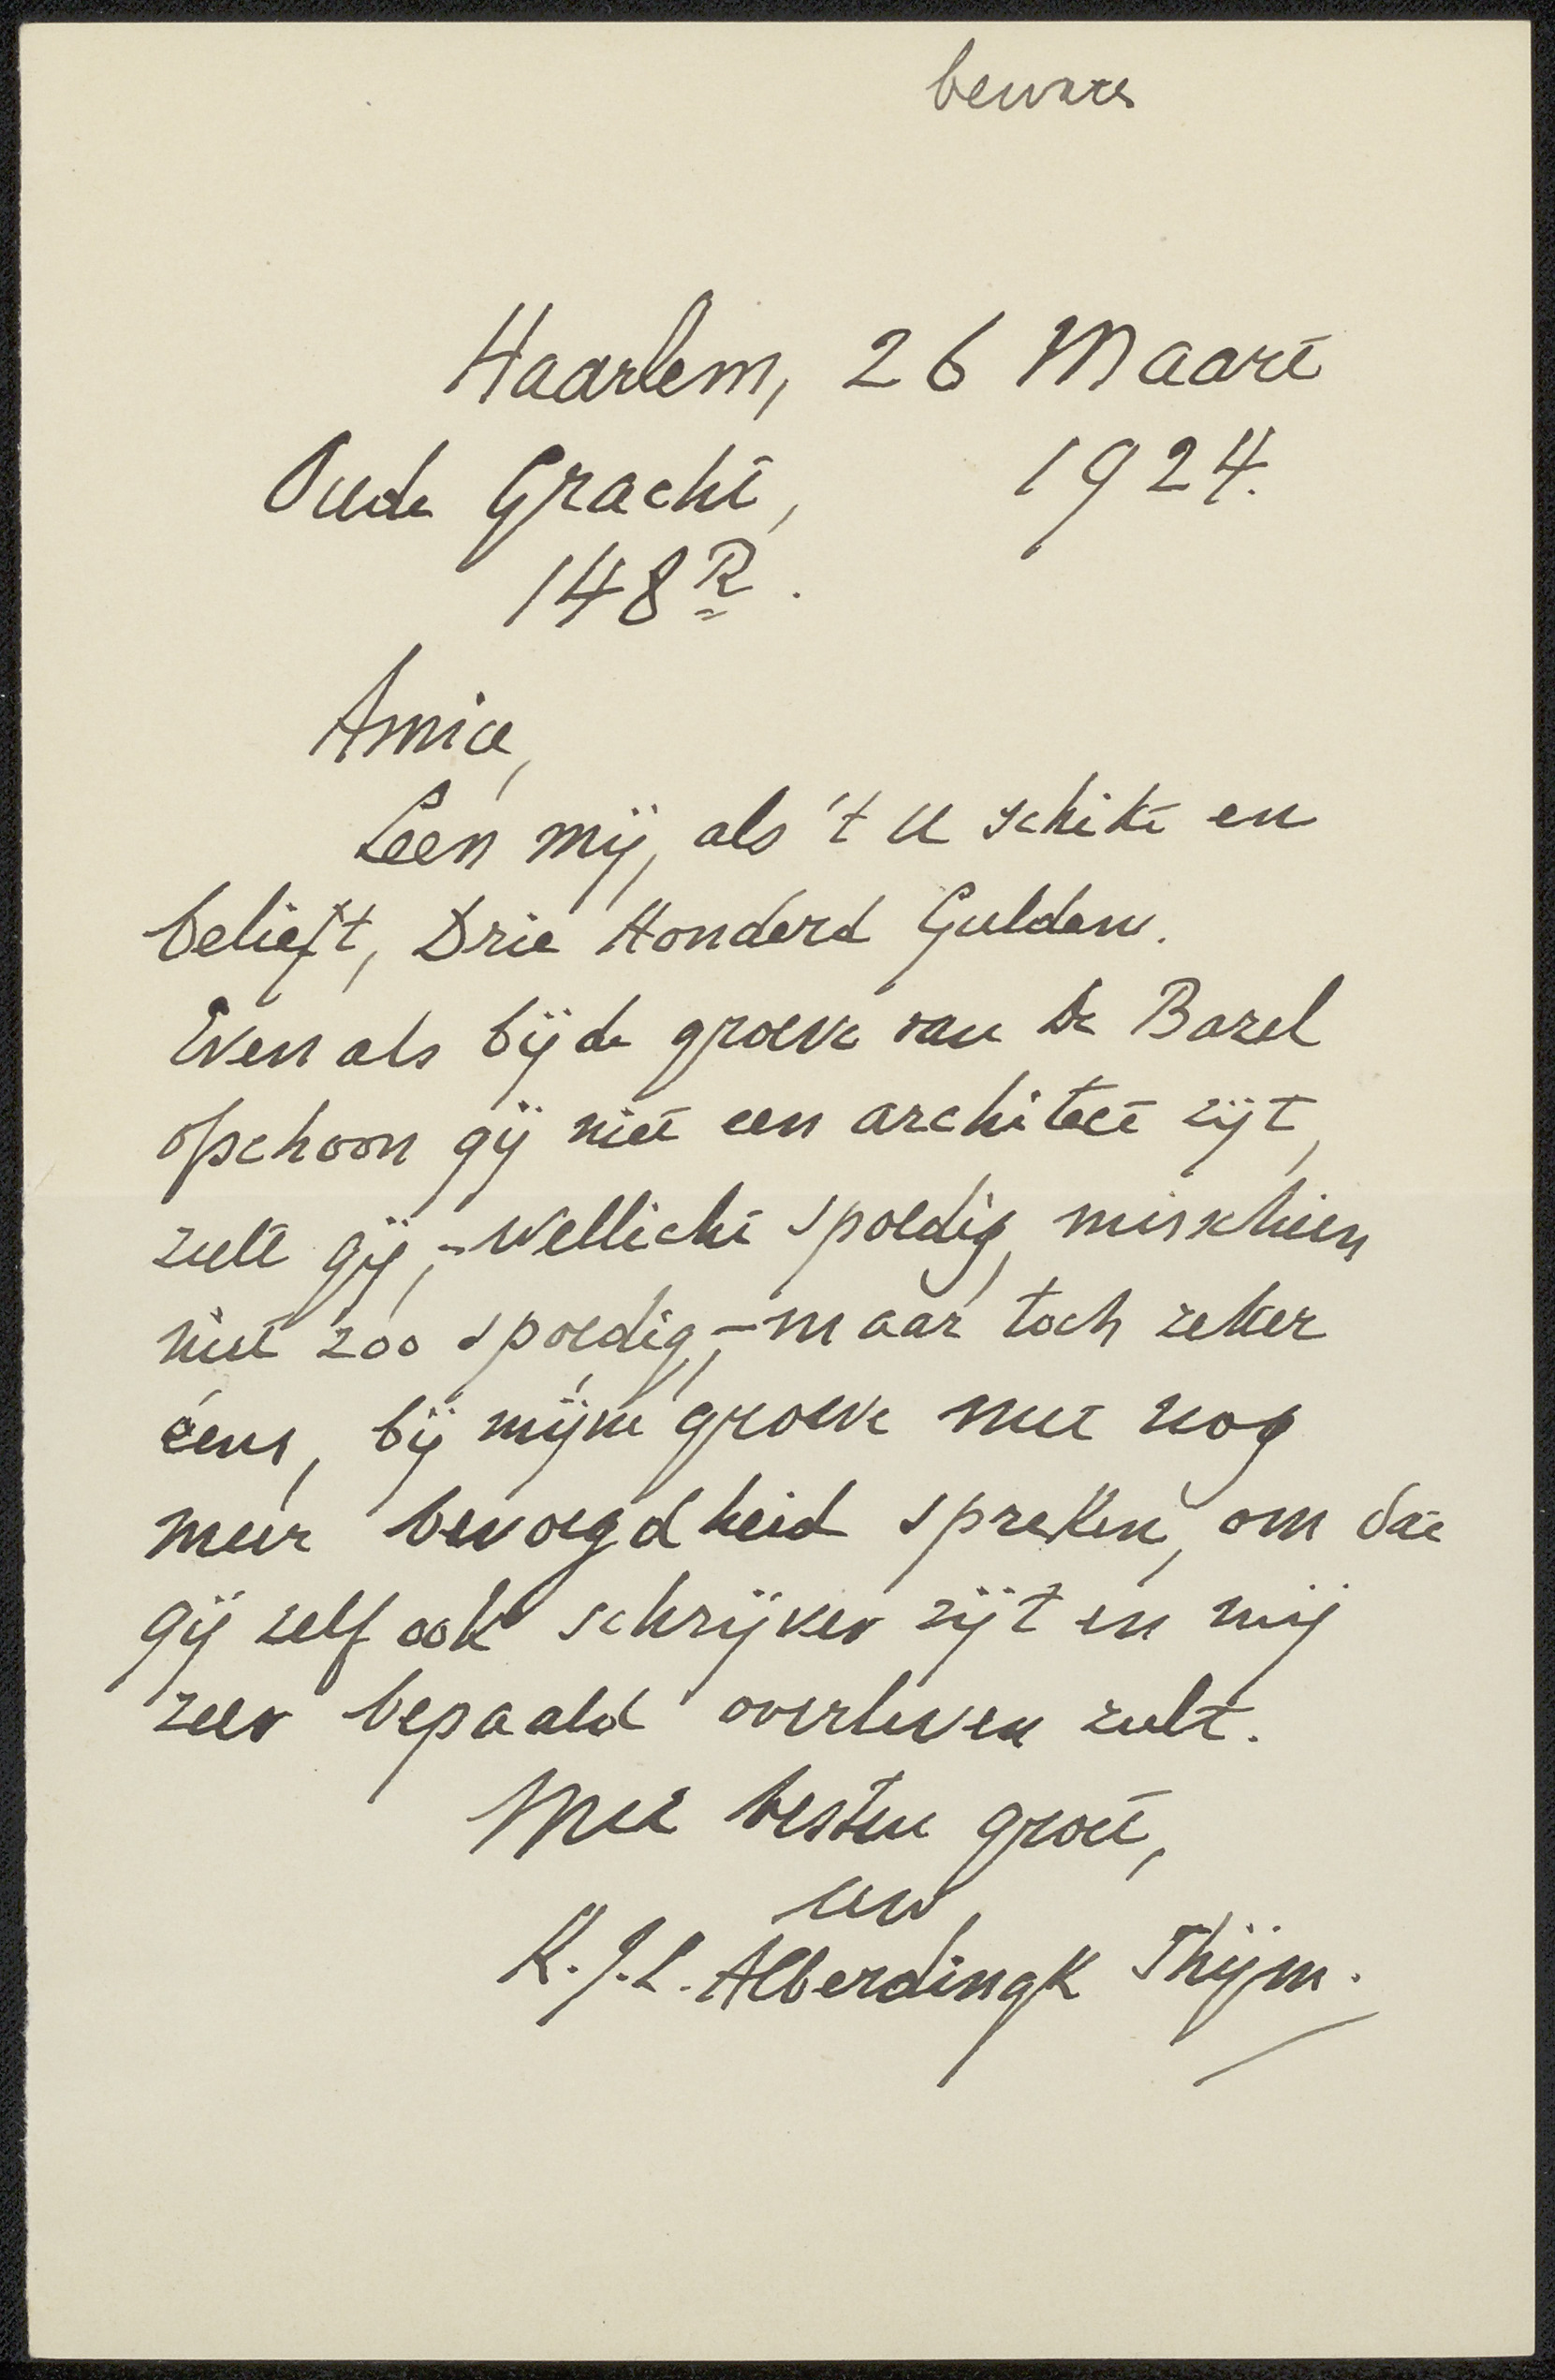 bewaren
Haarlem, 26 Maart
Oude Gracht, 1924.
148R.
Amice,
Leen mij, als 't U schikt en
belieft, Drie Honderd Gulden.
Even als bij de groeve van De Bazel
ofschoon gij niet een architect zijt,
zult gij,-wellicht spoedig, misschien
niet zoo spoedig,-maar toch zeker
éens, bij mijne groeve met nog
meer bevoegdheid spreken, om dat
gij zelf ook schrijver zijt en mij
zeer bepaald overleven zult.
Met besten groet,
uw
K.J.L. Alberdingk Thijm.